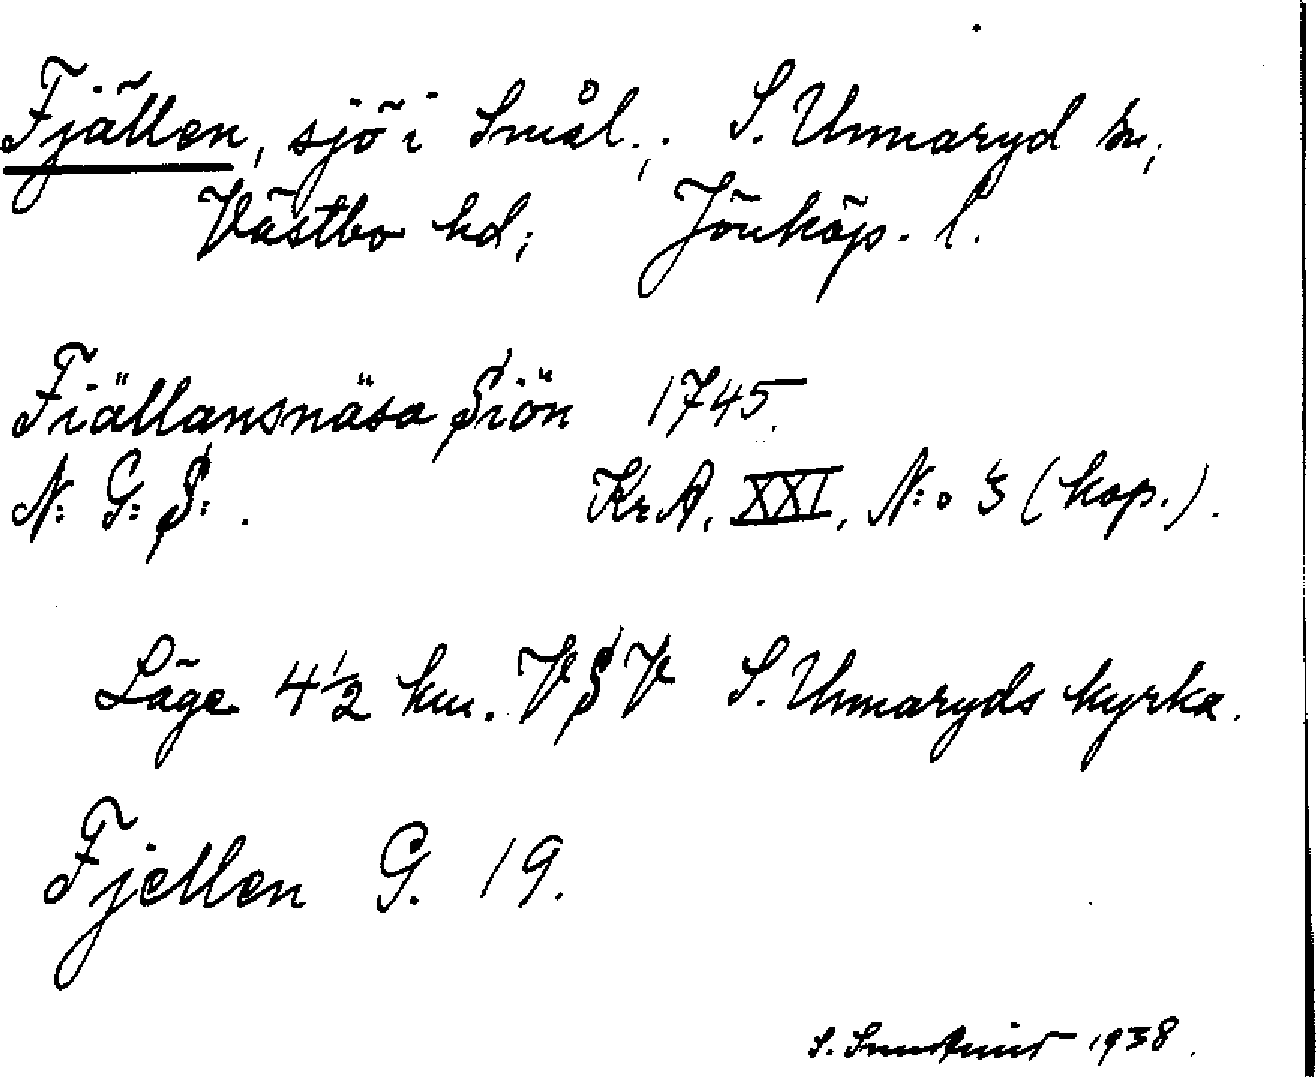 Fjällen, sjö i Smål.; S. Unnaryd sn;
Västbo hd; Jönköp. l.
Fiällansnäsa Siön 1745.
N: G: S: . Kr A. XXI, N:o 3 (kop.).
Läge 4½ km. VSV S. Unnaryds kyrka.
Fjellen G. 19.
S. 1938.